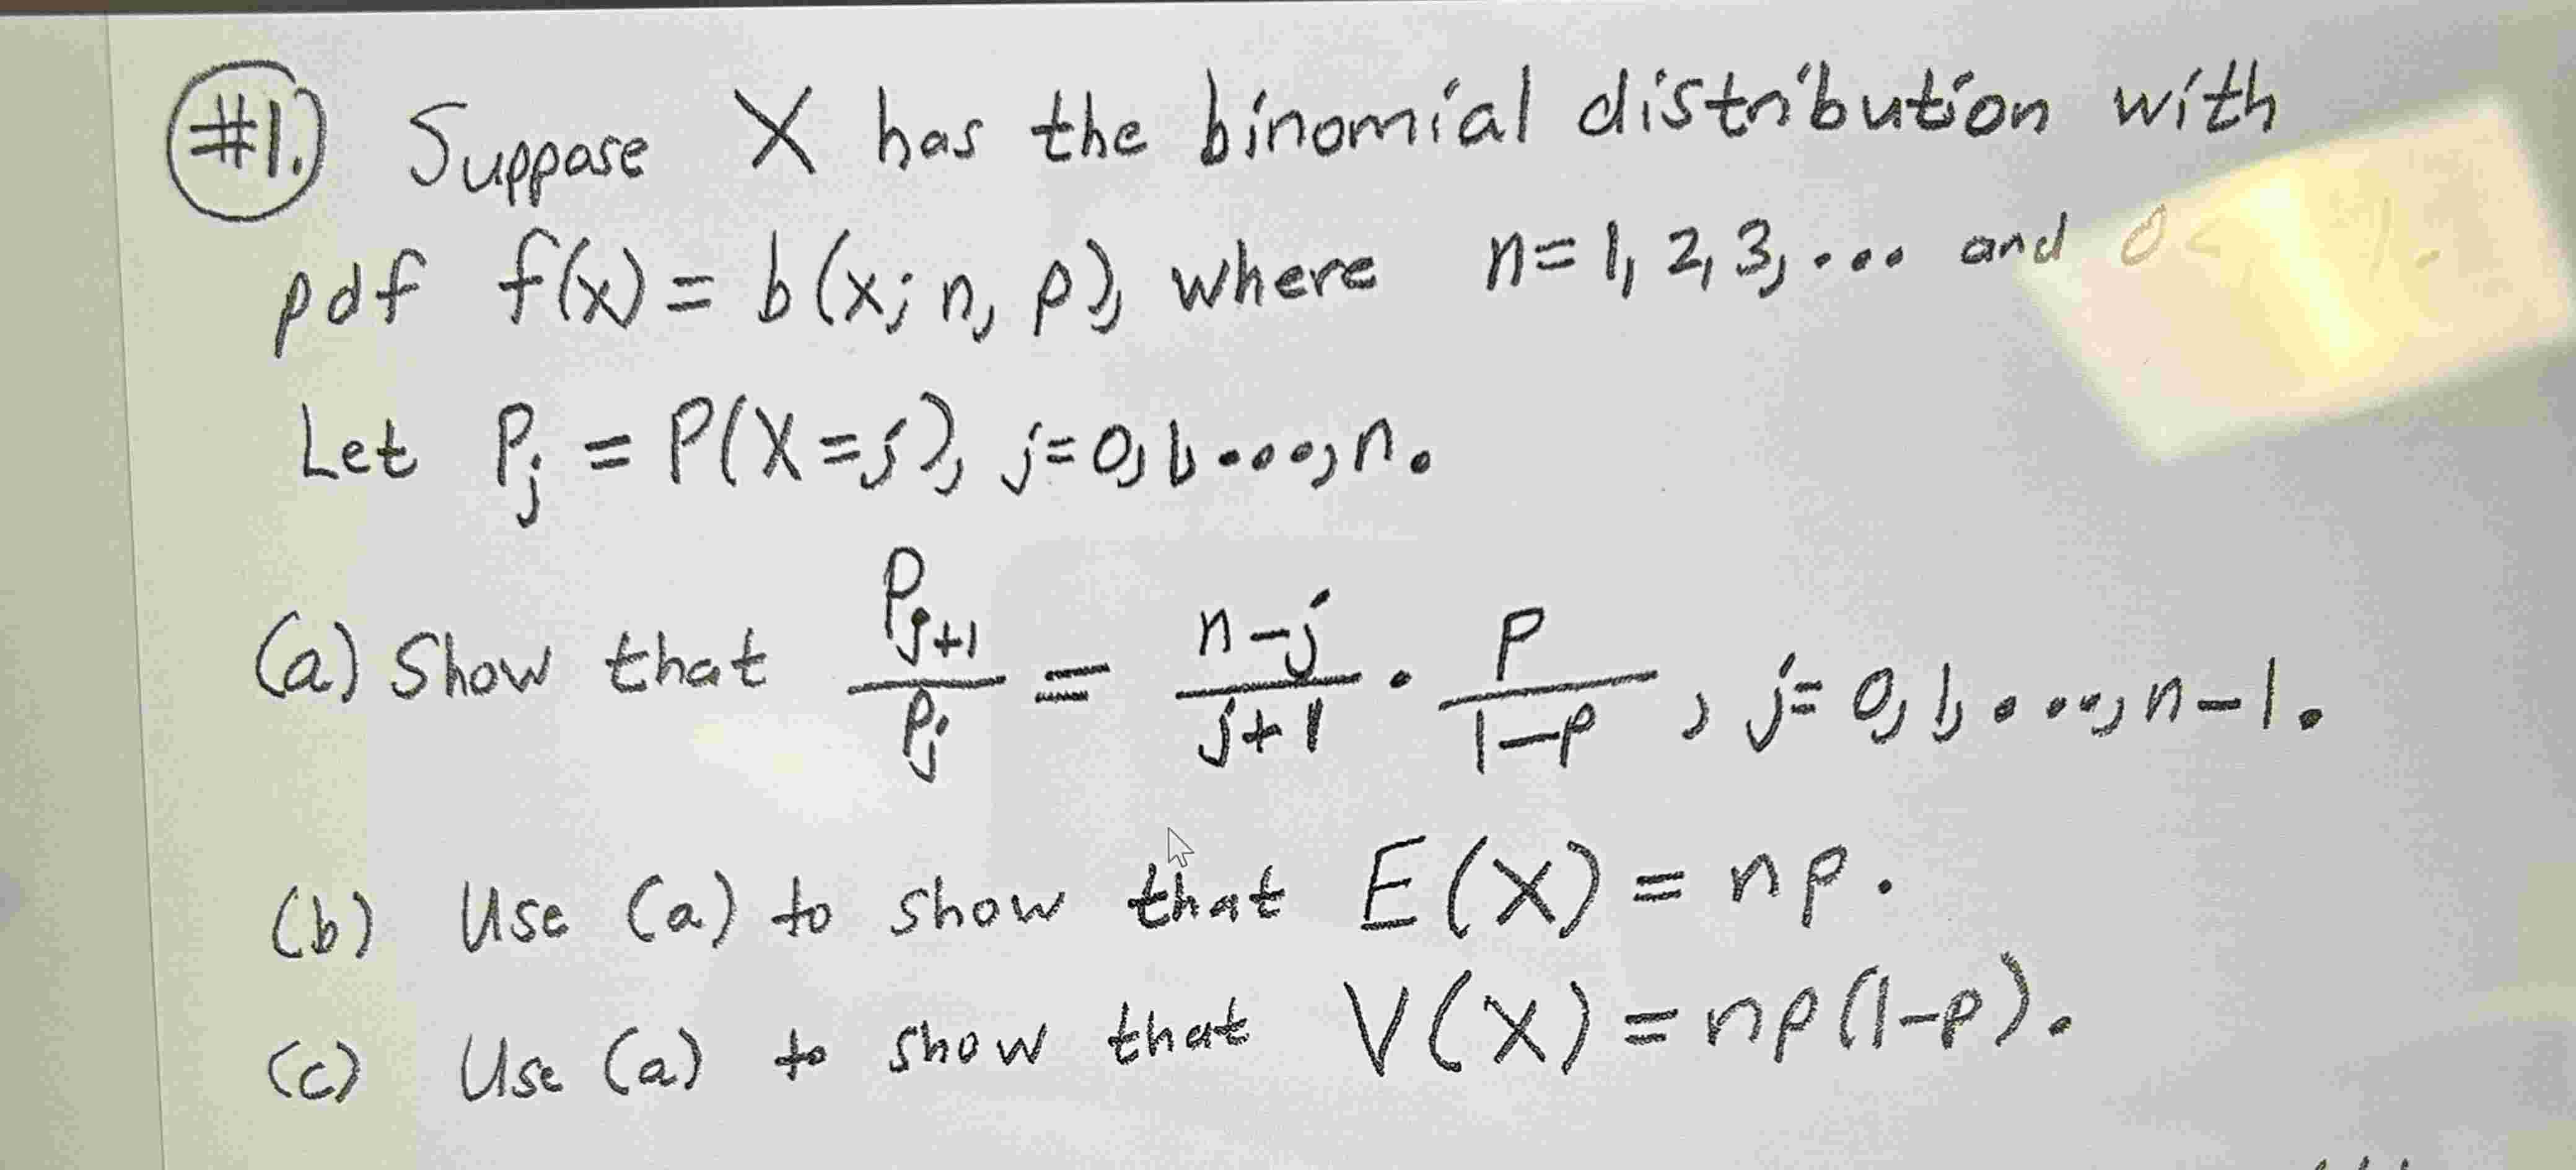 #1. Suppose X has the binomial distribution with
pdf f(x) = b(x; n, p), where n = 1, 2, 3, ... and 0 <
Let P_j = P(X = j), j = 0, 1, ..., n.
(a) Show that P_{j+1}/P_j = (n-j)/(j+1) · p/(1-p), j = 0, 1, ..., n-1.
(b) Use (a) to show that E(X) = np.
(c) Use (a) to show that V(X) = np(1-p).